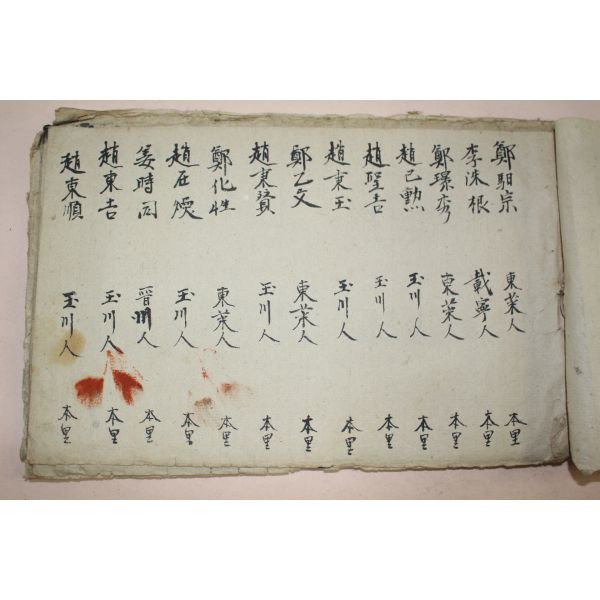 鄭馹宗 東萊人 本里
李洙根 載寧人 本里
鄭璟秀 東萊人 本里
趙己勲 玉川人 本里
趙聖吉 玉川人 本里
趙東玉 玉川人 本里
鄭乙文 東萊人 本里
趙東贇 玉川人 本里
鄭化性 東萊人 本里
趙在煥 玉川人 本里
姜時同 晉川人 本里
趙東吉 玉川人 本里
趙東順 玉川人 本里